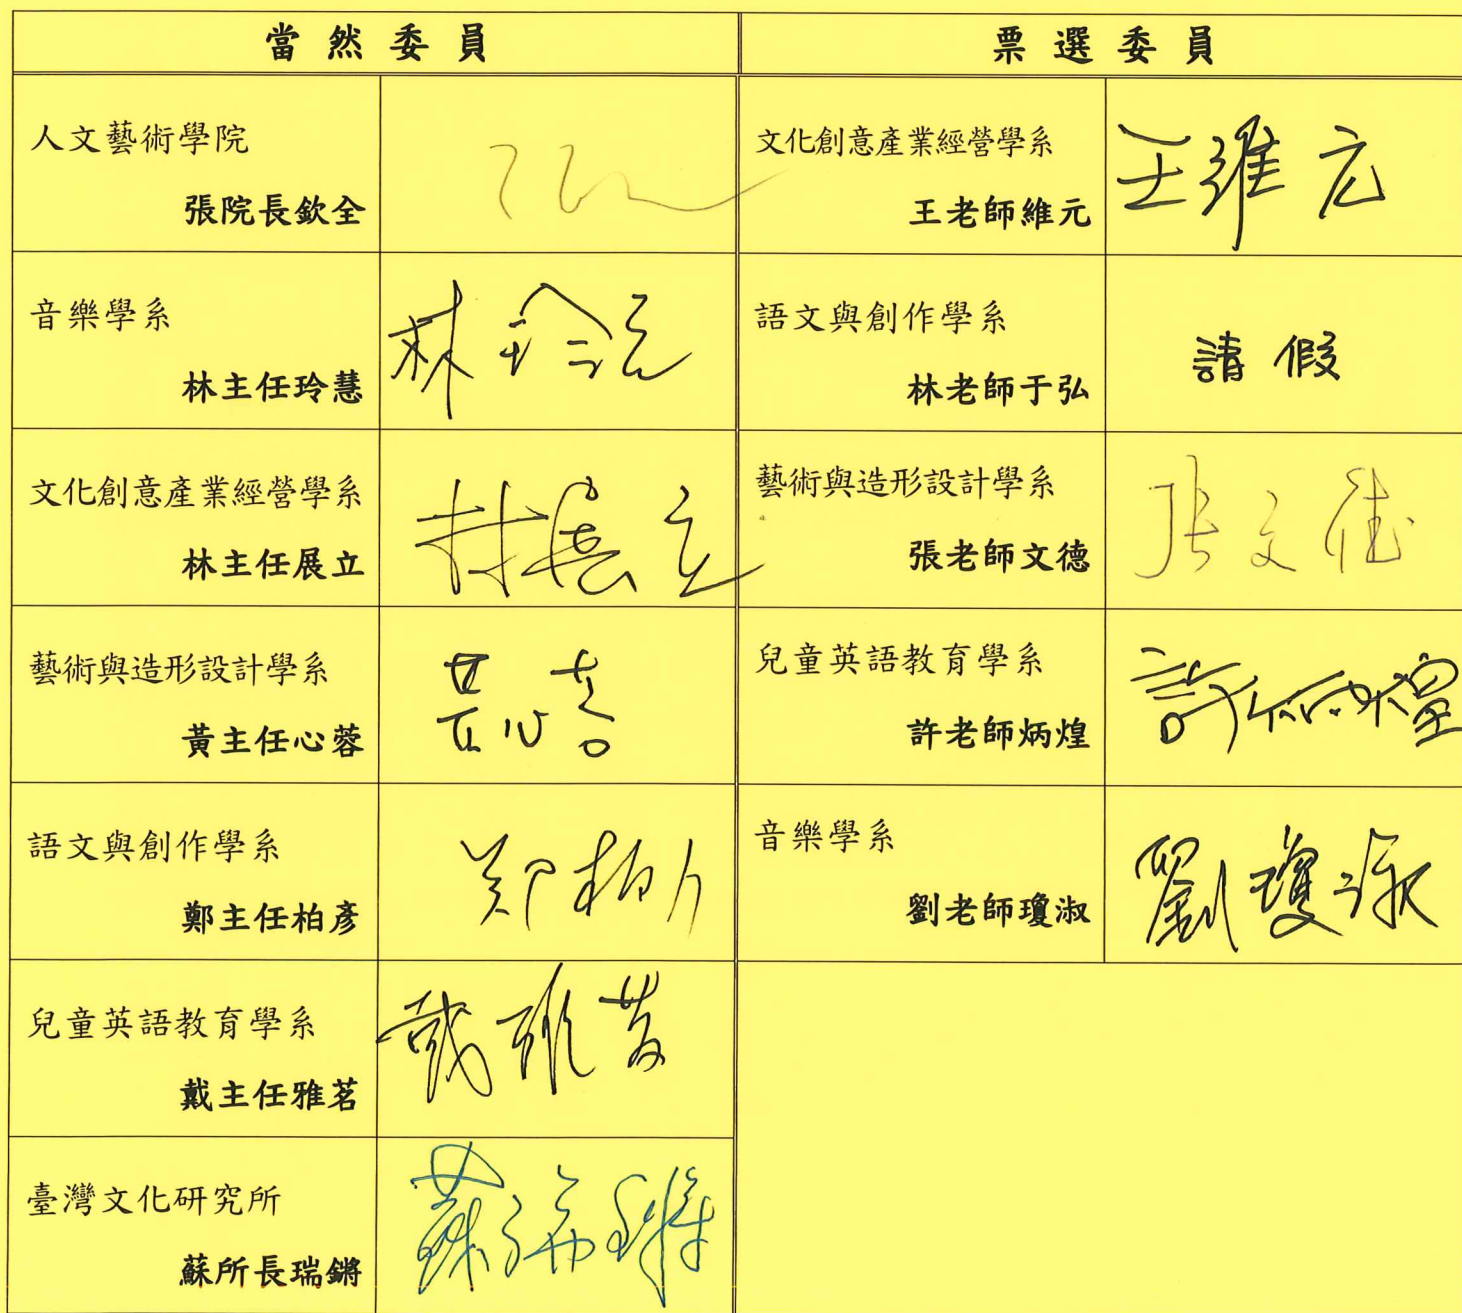 當然委員
票選委員
人文藝術學院
張院長欽全
文化創意產業經營學系
王老師維元
王維元
音樂學系
林主任玲慧
語文與創作學系
林老師于弘
請假
文化創意產業經營學系
林主任展立
林展立
藝術與造形設計學系
張老師文德
張文德
藝術與造形設計學系
黃主任心蓉
兒童英語教育學系
許老師炳煌
許炳煌
語文與創作學系
鄭主任柏彥
音樂學系
劉老師瓊淑
劉瓊淑
兒童英語教育學系
戴主任雅茗
戴雅茗
臺灣文化研究所
蘇所長瑞鏘
蘇瑞鏘